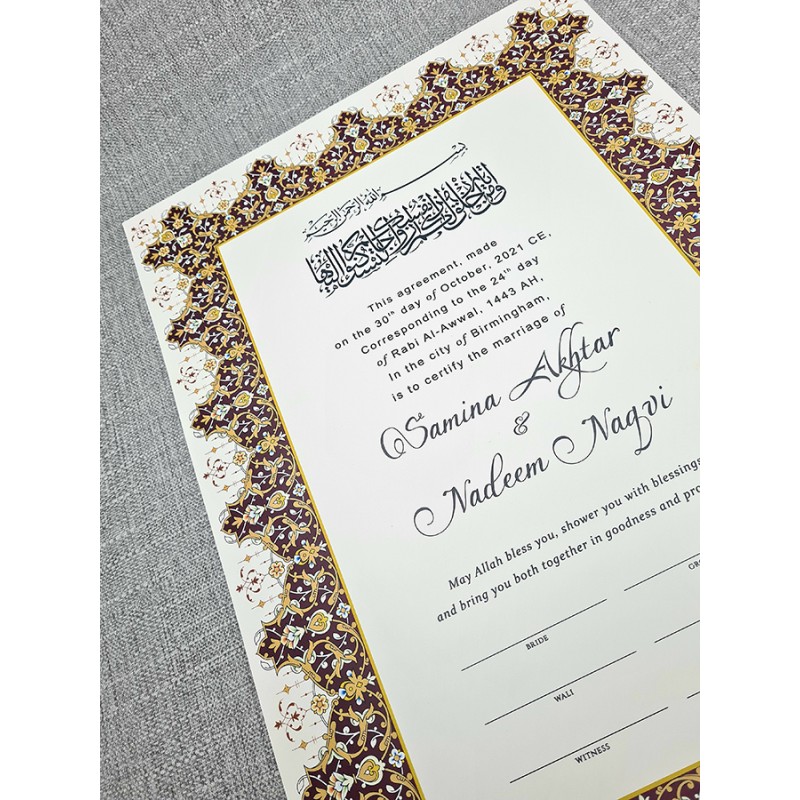 بسم الله الرحمن الرحيم
This agreement, made
on the 30th day of October, 2021 CE,
Corresponding to the 24th day
of Rabi Al-Awwal, 1443 AH,
In the city of Birmingham,
is to certify the marriage of
Samina Akhtar
&
Nadeem Naqvi
May Allah bless you, shower you with blessings
and bring you both together in goodness and pro
BRIDE
WALI
WITNESS